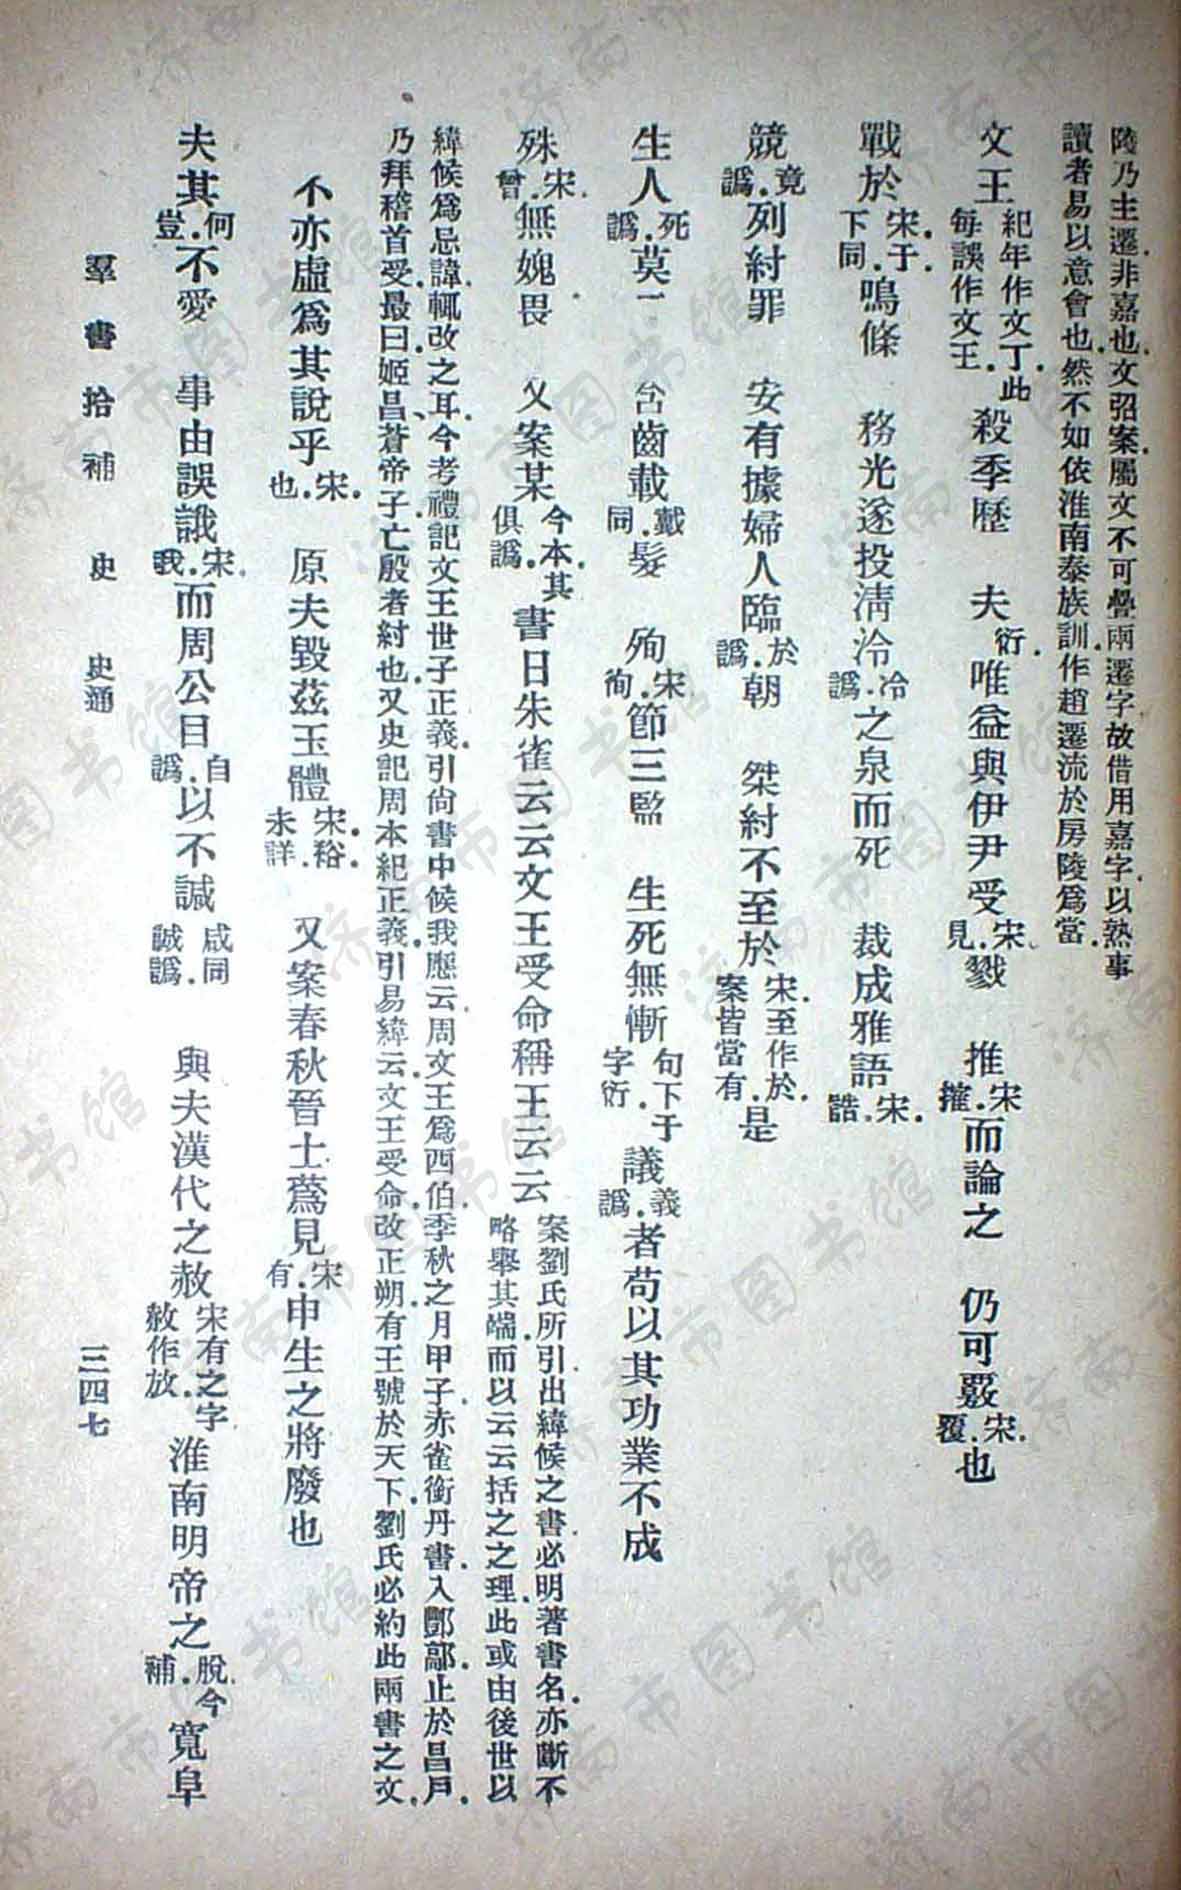 陵乃主遷.非嘉也.文弨案.屬文不可疊兩遷字故借用嘉字.以熟事
讀者易以意會也.然不如依淮南泰族訓.作趙遷流於房陵爲當.
文王紀年作文丁.此每誤作文王.殺季歷　夫衍.唯益與伊尹受宋.見.戮　推宋.搉.而論之　仍可覈宋.覆.也
戰於宋.于.下同.鳴條　務光遂投淸泠冷.譌.之泉而死　裁成雅語宋.誥.
競竟.譌.列紂罪　安有據婦人臨於.譌.朝　桀紂不至於宋.至作於.案皆當有.是
生人死.譌.莫二　含齒載戴.同.髮　殉宋.徇.節三監　生死無慚句下于字衍.議義.譌.者苟以其功業不成
殊宋.曾.無媿畏　又案某今本.其俱譌.書曰朱雀云云文王受命稱王云云案劉氏所引.出緯候之書.必明著書名.亦斷不略舉其端.而以云云括之之理.此或由後世以
緯候爲忌諱.輒改之耳.今考禮記文王世子正義.引尙書中候我應云.周文王爲西伯.季秋之月甲子.赤雀銜丹書.入酆鄗.止於昌戶.
乃拜稽首受.最曰.姬昌、蒼帝子.亡殷者紂也.又史記周本紀正義.引易緯云.文王受命.改正朔.有王號於天下.劉氏必約此兩書之文.
不亦虛爲其說乎宋.也.　原夫毀茲玉體宋.裕.未詳.　又案春秋晉士蒍見宋.有.申生之將廢也
夫其何.豈.不愛　事由誤誐宋.哦.而周公目自.譌.以不諴咸同.誠譌.　與夫漢代之赦宋有之字.赦作放.淮南明帝之脫.今補.寬阜
羣書拾補　史　史通　三四七